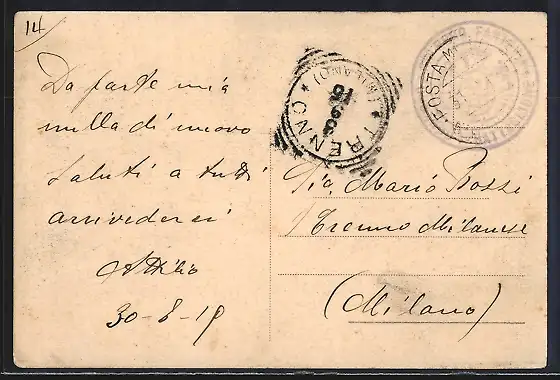 14
Da parte mia
nulla di nuovo
Saluti a tutti
arrivederci
Attilio
30-8-19
TRENNO
(MILANO)
POSTA M
Sig. Mario Bossi
Trenno Milanese
(Milano)